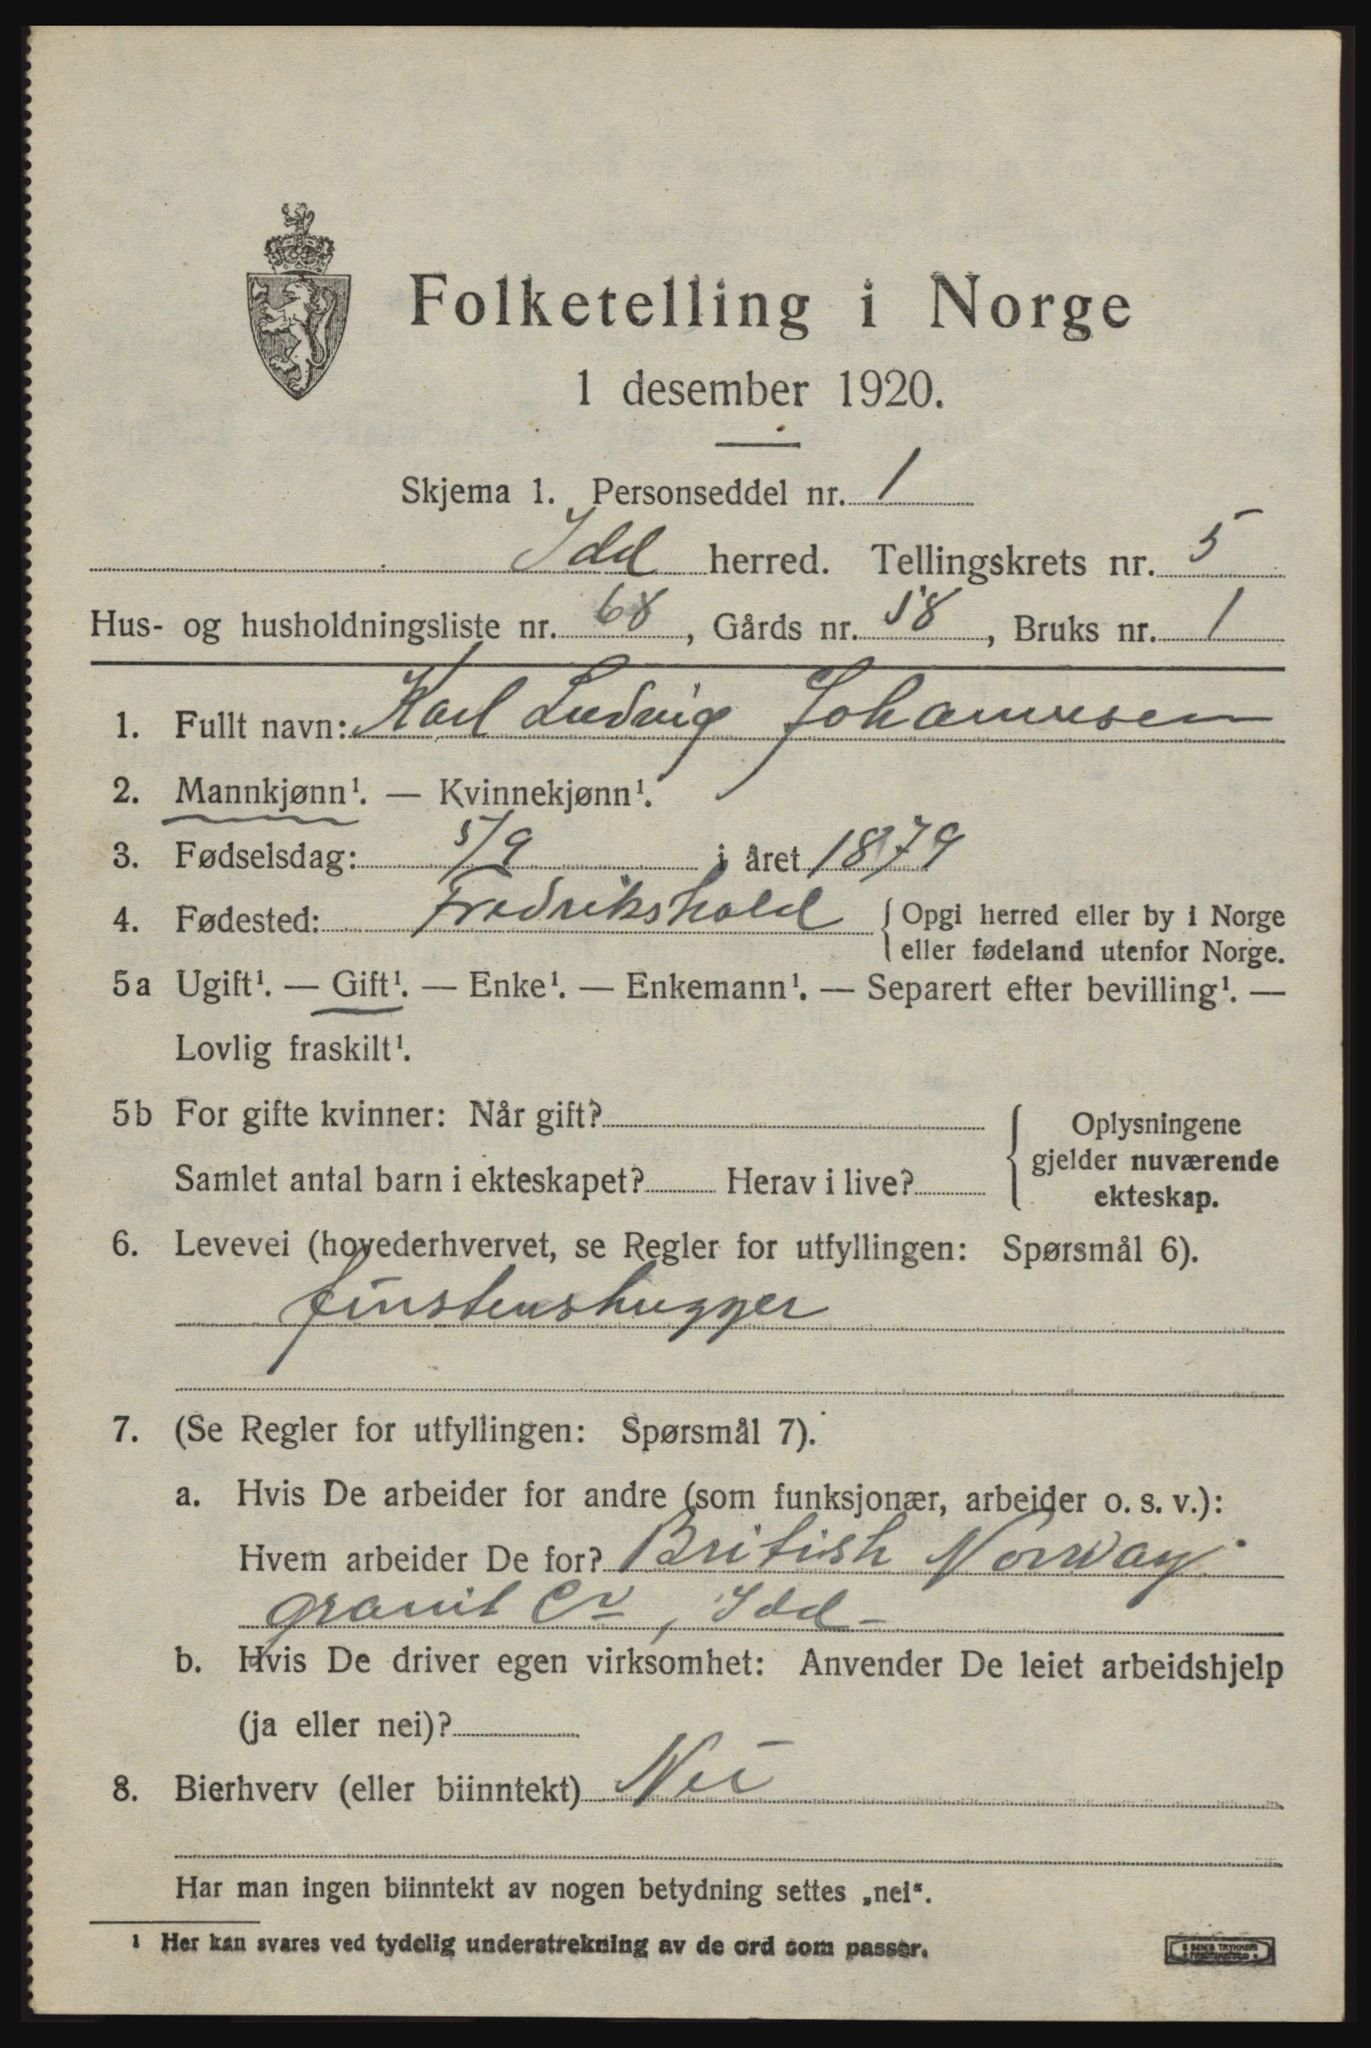 Folketelling i Norge
1 desember 1920.
Skjema 1. Personseddel nr. 1
Idd herred. Tellingskrets nr. 5
Hus- og husholdningsliste nr. 68, Gårds nr. 58, Bruks nr. 1
1. Fullt navn: Karl Ludvig Johannesen
2. Mannkjønn¹. — Kvinnekjønn¹.
3. Fødselsdag: 5/9 i året 1879
4. Fødested: Fredrikshald { Opgi herred eller by i Norge
eller fødeland utenfor Norge.
5a Ugift¹. — Gift¹. — Enke¹. — Enkemann¹. — Separert efter bevilling¹. —
Lovlig fraskilt¹.
5b For gifte kvinner: Når gift?
Samlet antal barn i ekteskapet? Herav i live?
{ Oplysningene
gjelder nuværende
ekteskap.
6. Levevei (hovederhvervet, se Regler for utfyllingen: Spørsmål 6).
finstenshugger
7. (Se Regler for utfyllingen: Spørsmål 7).
a. Hvis De arbeider for andre (som funksjonær, arbeider o. s. v.):
Hvem arbeider De for? British Norway
granit Co, Idd
b. Hvis De driver egen virksomhet: Anvender De leiet arbeidshjelp
(ja eller nei)?
8. Bierhverv (eller biinntekt) Nei
Har man ingen biinntekt av nogen betydning settes „nei“.
¹ Her kan svares ved tydelig understrekning av de ord som passer.